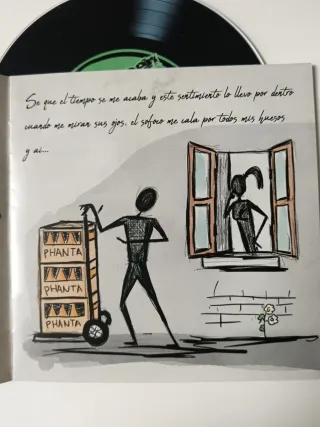 Se que el tiempo se me acaba y este sentimiento lo llevo por dentro
cuando me miran sus ojos, el sofoco me cala por todos mis huesos
y ai...
PHANTA
PHANTA
PHANTA